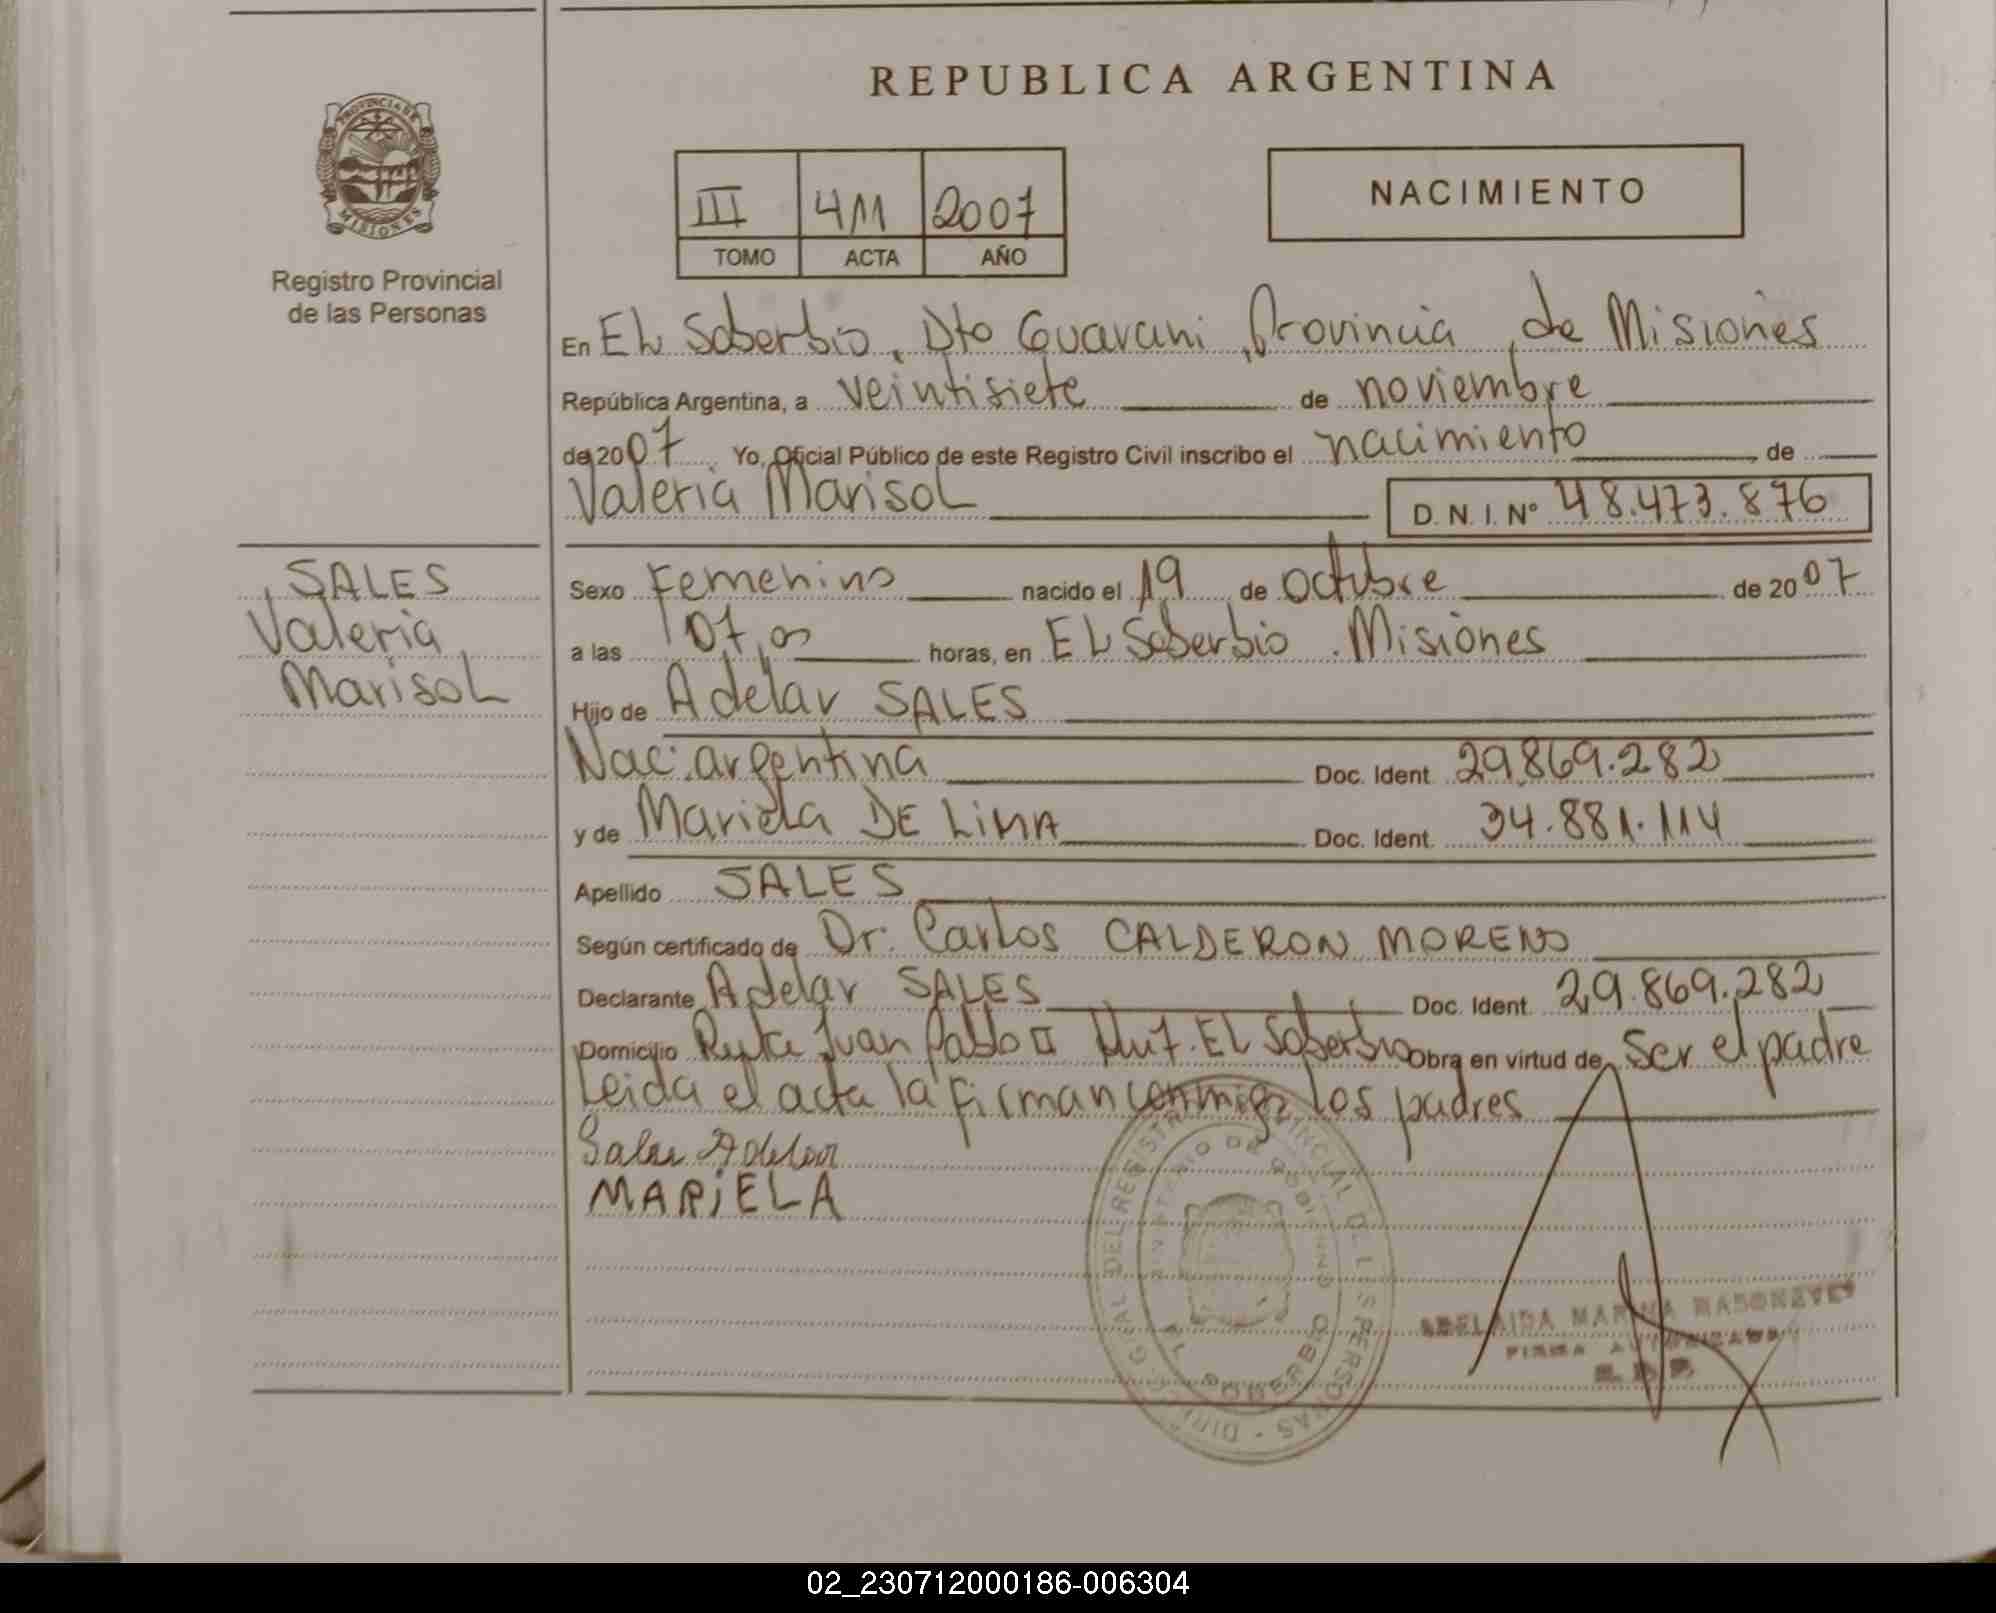 REPUBLICA ARGENTINA
PROVINCIA DE
MISIONES
Registro Provincial
de las Personas
III 411 2007
TOMO ACTA AÑO
NACIMIENTO
En EL Soberbio, Dto Guarani, Provincia de Misiones
República Argentina, a veintisiete de noviembre
de 2007 Yo, Oficial Público de este Registro Civil inscribo el nacimiento de
Valeria Marisol
D. N. I. Nº 48.473.876
SALES
Valeria
Marisol
Sexo Femenino nacido el 19 de octubre de 2007
a las 07,00 horas, en EL Soberbio. Misiones
Hijo de Adelar SALES
Nac: argentina Doc. Ident. 29.869.282
y de Mariela DE LIMA Doc. Ident. 34.881.114
Apellido SALES
Según certificado de Dr. Carlos CALDERON MORENO
Declarante Adelar SALES Doc. Ident. 29.869.282
Domicilio Ruta Juan Pablo II EL Soberbio Obra en virtud de Ser el padre
Leida el acta la firman conmigo los padres
Sales Adelar
MARiELA
MINISTERIO DE GOBIERNO
EL SOBERBIO
ADELAIDA MARINA
FIRMA AUTORIZADA
02_230712000186-006304